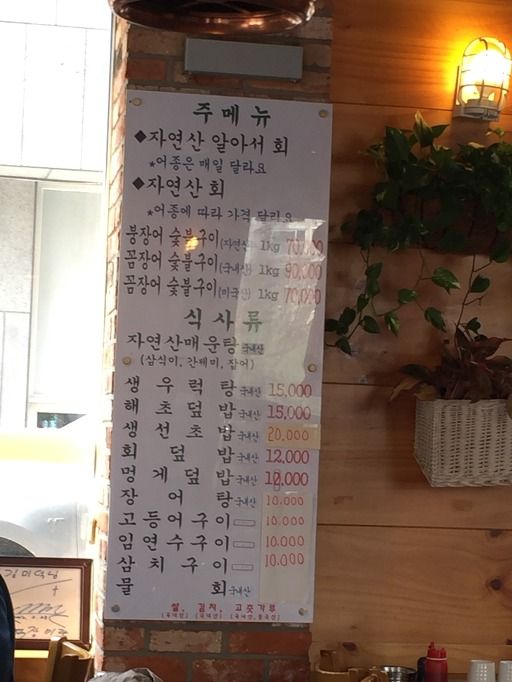 주 메 뉴
◆자연산 알아서 회
*어종은 매일 달라요
◆자연산 회
*어종에 따라 가격 달리요
붕장어 숯불구이(자연산) 1kg 70,000
꼼장어 숯불구이(국내산) 1kg 90,000
꼼장어 숯불구이(미국산) 1kg 70,000
식 사 류
자연산매운탕 국내산
(삼식이, 간제미, 잡어)
생 우 럭 탕 국내산 15,000
해 초 덮 밥 국내산 15,000
생 선 초 밥 국내산 20,000
회 덮 밥 국내산 12,000
멍 게 덮 밥 국내산 12,000
장 어 탕 국내산 10,000
고 등 어 구 이 10,000
임 연 수 구 이 10,000
삼 치 구 이 10,000
물 회 국내산
쌀, 김치, 고춧가루
(국내산) (국내산) (국내산,중국산)
김미덕님